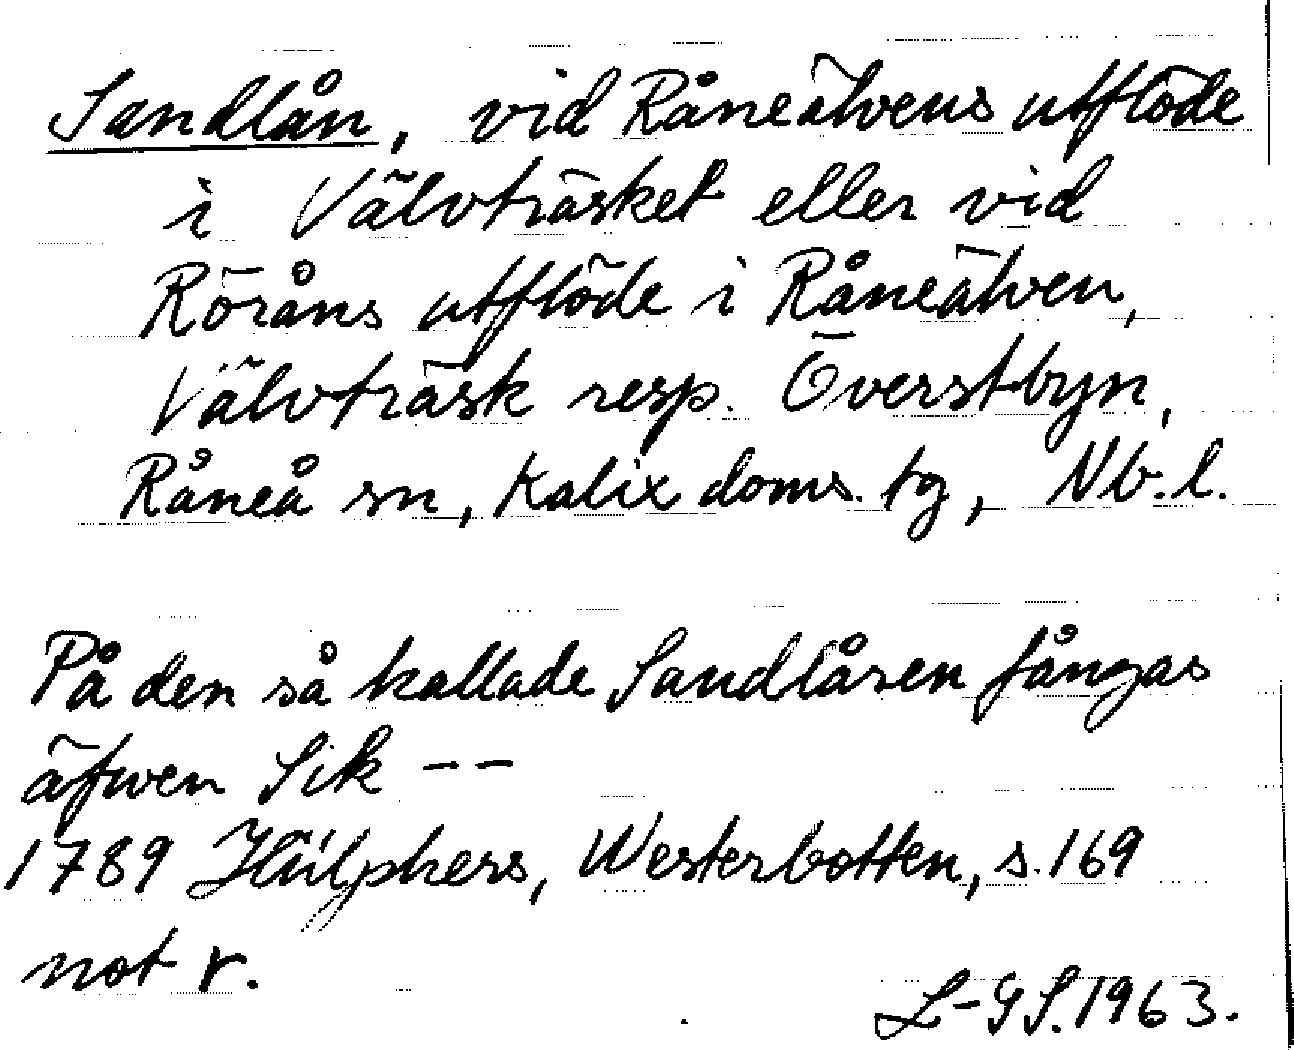 Sandlån, vid Råneälvens utflöde
i Välvträsket eller vid
Röråns utflöde i Råneälven,
Välvträsk resp. Överstbyn,
Råneå sn, Kalix doms. tg, Nb. l.
På den så kallade Sandlånen fångas
äfwen Sik --
1789 Hülphers, Westerbotten, s. 169
not r.
L-GS. 1963.